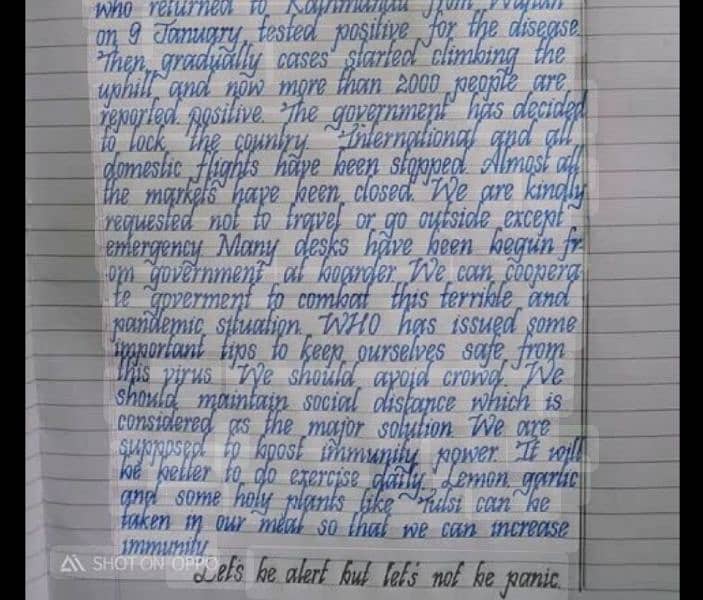 who returned to Kathmandu from Wuhan
on 9 January, tested positive for the disease.
Then gradually cases started climbing the
uphill and now more than 2000 people are
reported positive. The government has decided
to lock the country. International and all
domestic flights have been stopped. Almost all
the markets have been closed. We are kindly
requested not to travel or go outside except
emergency. Many desks have been begun fr-
om government at boarder. We can coopera-
te goverment to combat this terrible and
pandemic situation. WHO has issued some
important tips to keep ourselves safe from
this virus. We should avoid crowd. We
should maintain social distance which is
considered as the major solution. We are
supposed to boost immunity power. It will
be better to do exercise daily. Lemon, garlic
and some holy plants like Tulsi can be
taken in our meal so that we can increase
immunity.
Let's be alert but let's not be panic.
SHOT ON OPPO